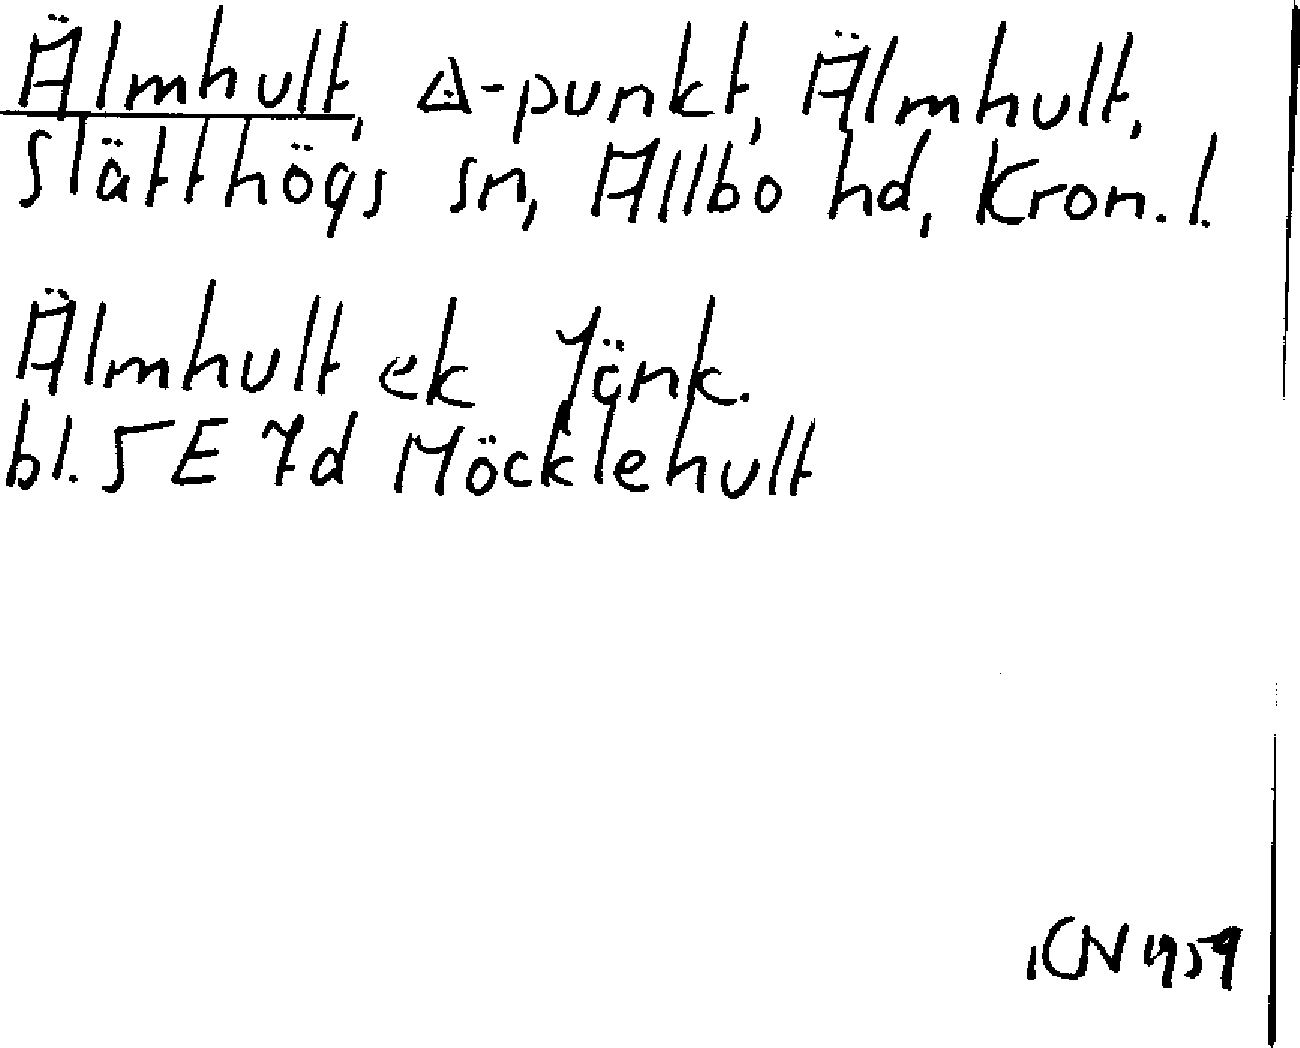 Älmhult, △-punkt, Älmhult,
Slätthögs sn, Allbo hd, Kron. l.
Älmhult ek Jönk.
bl. 5E 7d Möcklehult
CN 1959